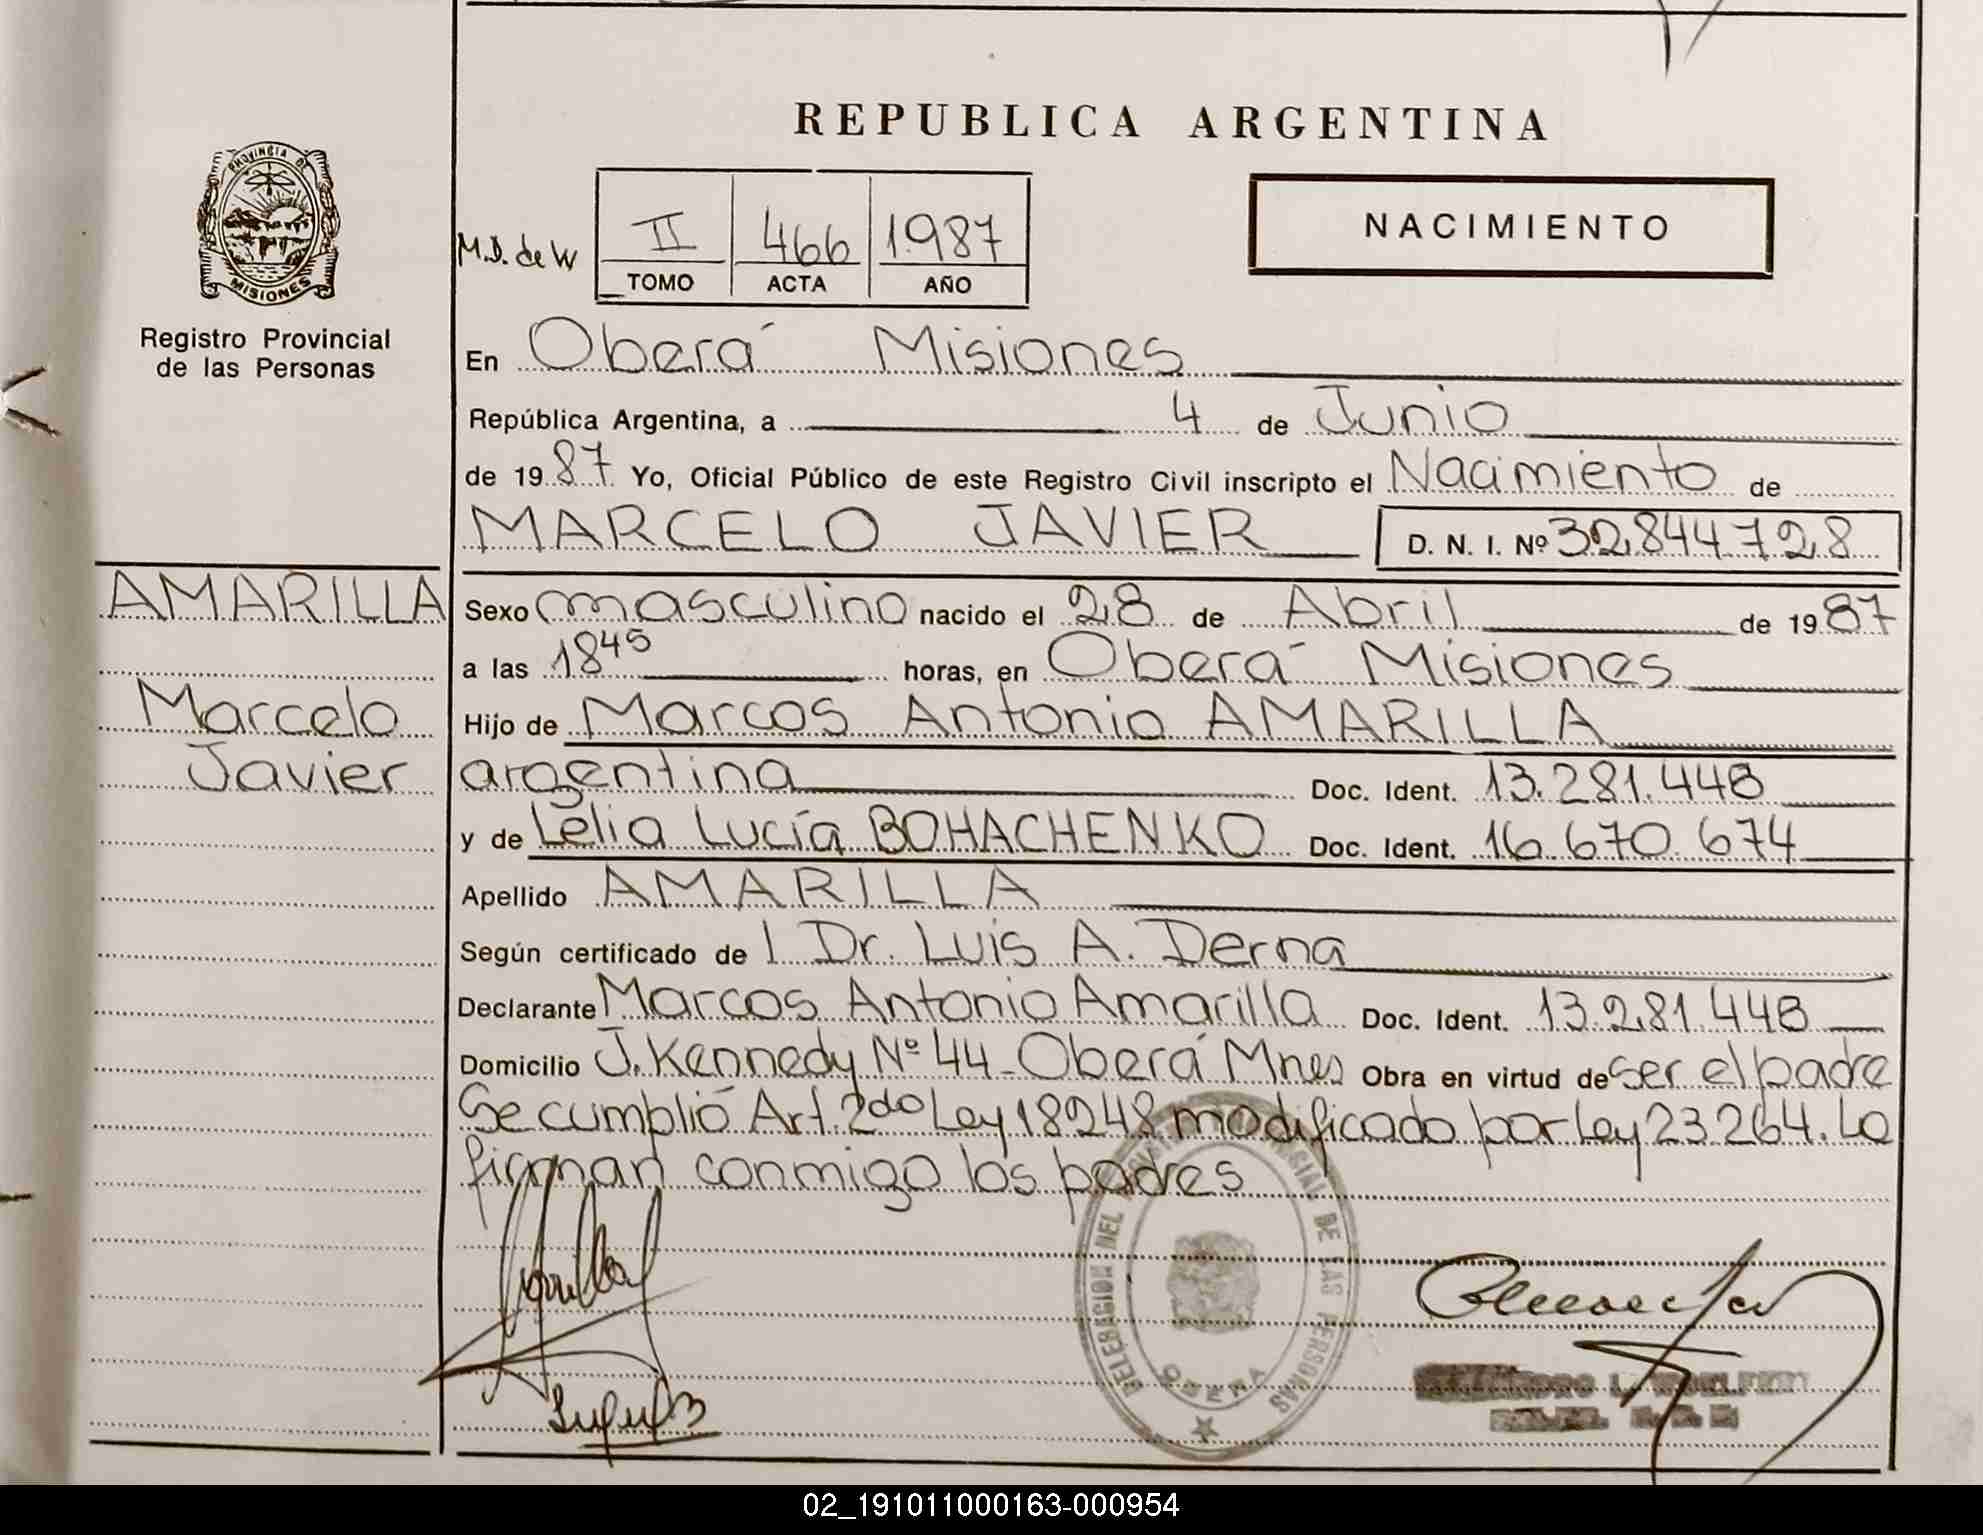 REPUBLICA ARGENTINA
PROVINCIA DE
MISIONES
Registro Provincial
de las Personas
M.D. de W
II 466 1987
TOMO ACTA AÑO
NACIMIENTO
En Oberá Misiones
República Argentina, a 4 de Junio
de 1987 Yo, Oficial Público de este Registro Civil inscripto el Nacimiento de
MARCELO JAVIER D. N. I. Nº 32844728
AMARILLA
Marcelo
Javier
Sexo masculino nacido el 28 de Abril de 1987
a las 1845 horas, en Oberá Misiones
Hijo de Marcos Antonio AMARILLA
argentina Doc. Ident. 13.281.448
y de Lelia Lucía BOHACHENKO Doc. Ident. 16.670.674
Apellido AMARILLA
Según certificado de l Dr. Luis A. Derna
Declarante Marcos Antonio Amarilla Doc. Ident. 13.281.448
Domicilio J. Kennedy Nº 44 - Oberá Mnes Obra en virtud de ser el padre
Se cumplió Art. 2do Ley 18248 modificado por Ley 23.264. Lo
firman conmigo los padres
DELEGACION DEL REGISTRO PROVINCIAL DE LAS PERSONAS
OBERA
02_191011000163-000954